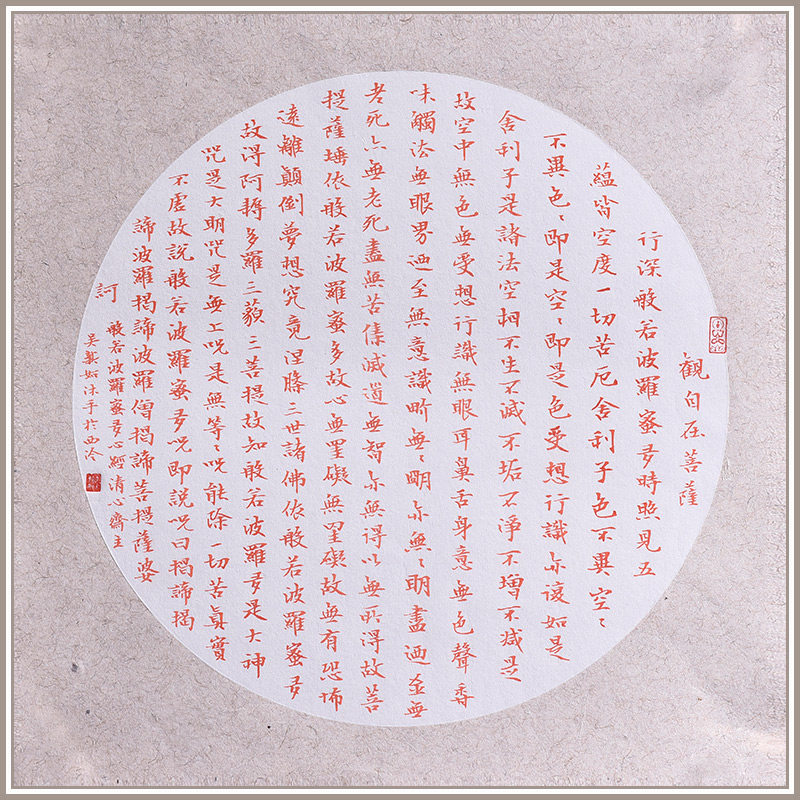 觀自在菩薩
行深般若波羅蜜多時照見五
蘊皆空度一切苦厄舍利子色不異空〻
不異色〻即是空〻即是色受想行識亦復如是
舍利子是諸法空相不生不滅不垢不淨不增不減是
故空中無色無受想行識無眼耳鼻舌身意無色聲香
味觸法無眼界迺至無意識界無〻明亦無〻明盡迺至無
老死亦無老死盡無苦集滅道無智亦無得以無所得故菩
提薩埵依般若波羅蜜多故心無罣礙無罣礙故無有恐怖
遠離顛倒夢想究竟涅槃三世諸佛依般若波羅蜜多
故得阿耨多羅三藐三菩提故知般若波羅多是大神
咒是大明咒是無上咒是無等〻咒能除一切苦真實
不虛故說般若波羅蜜多咒即說咒曰揭諦揭
諦波羅揭諦波羅僧揭諦菩提薩婆
訶
般若波羅蜜多心經清心齋主
吳斯沐手於西泠